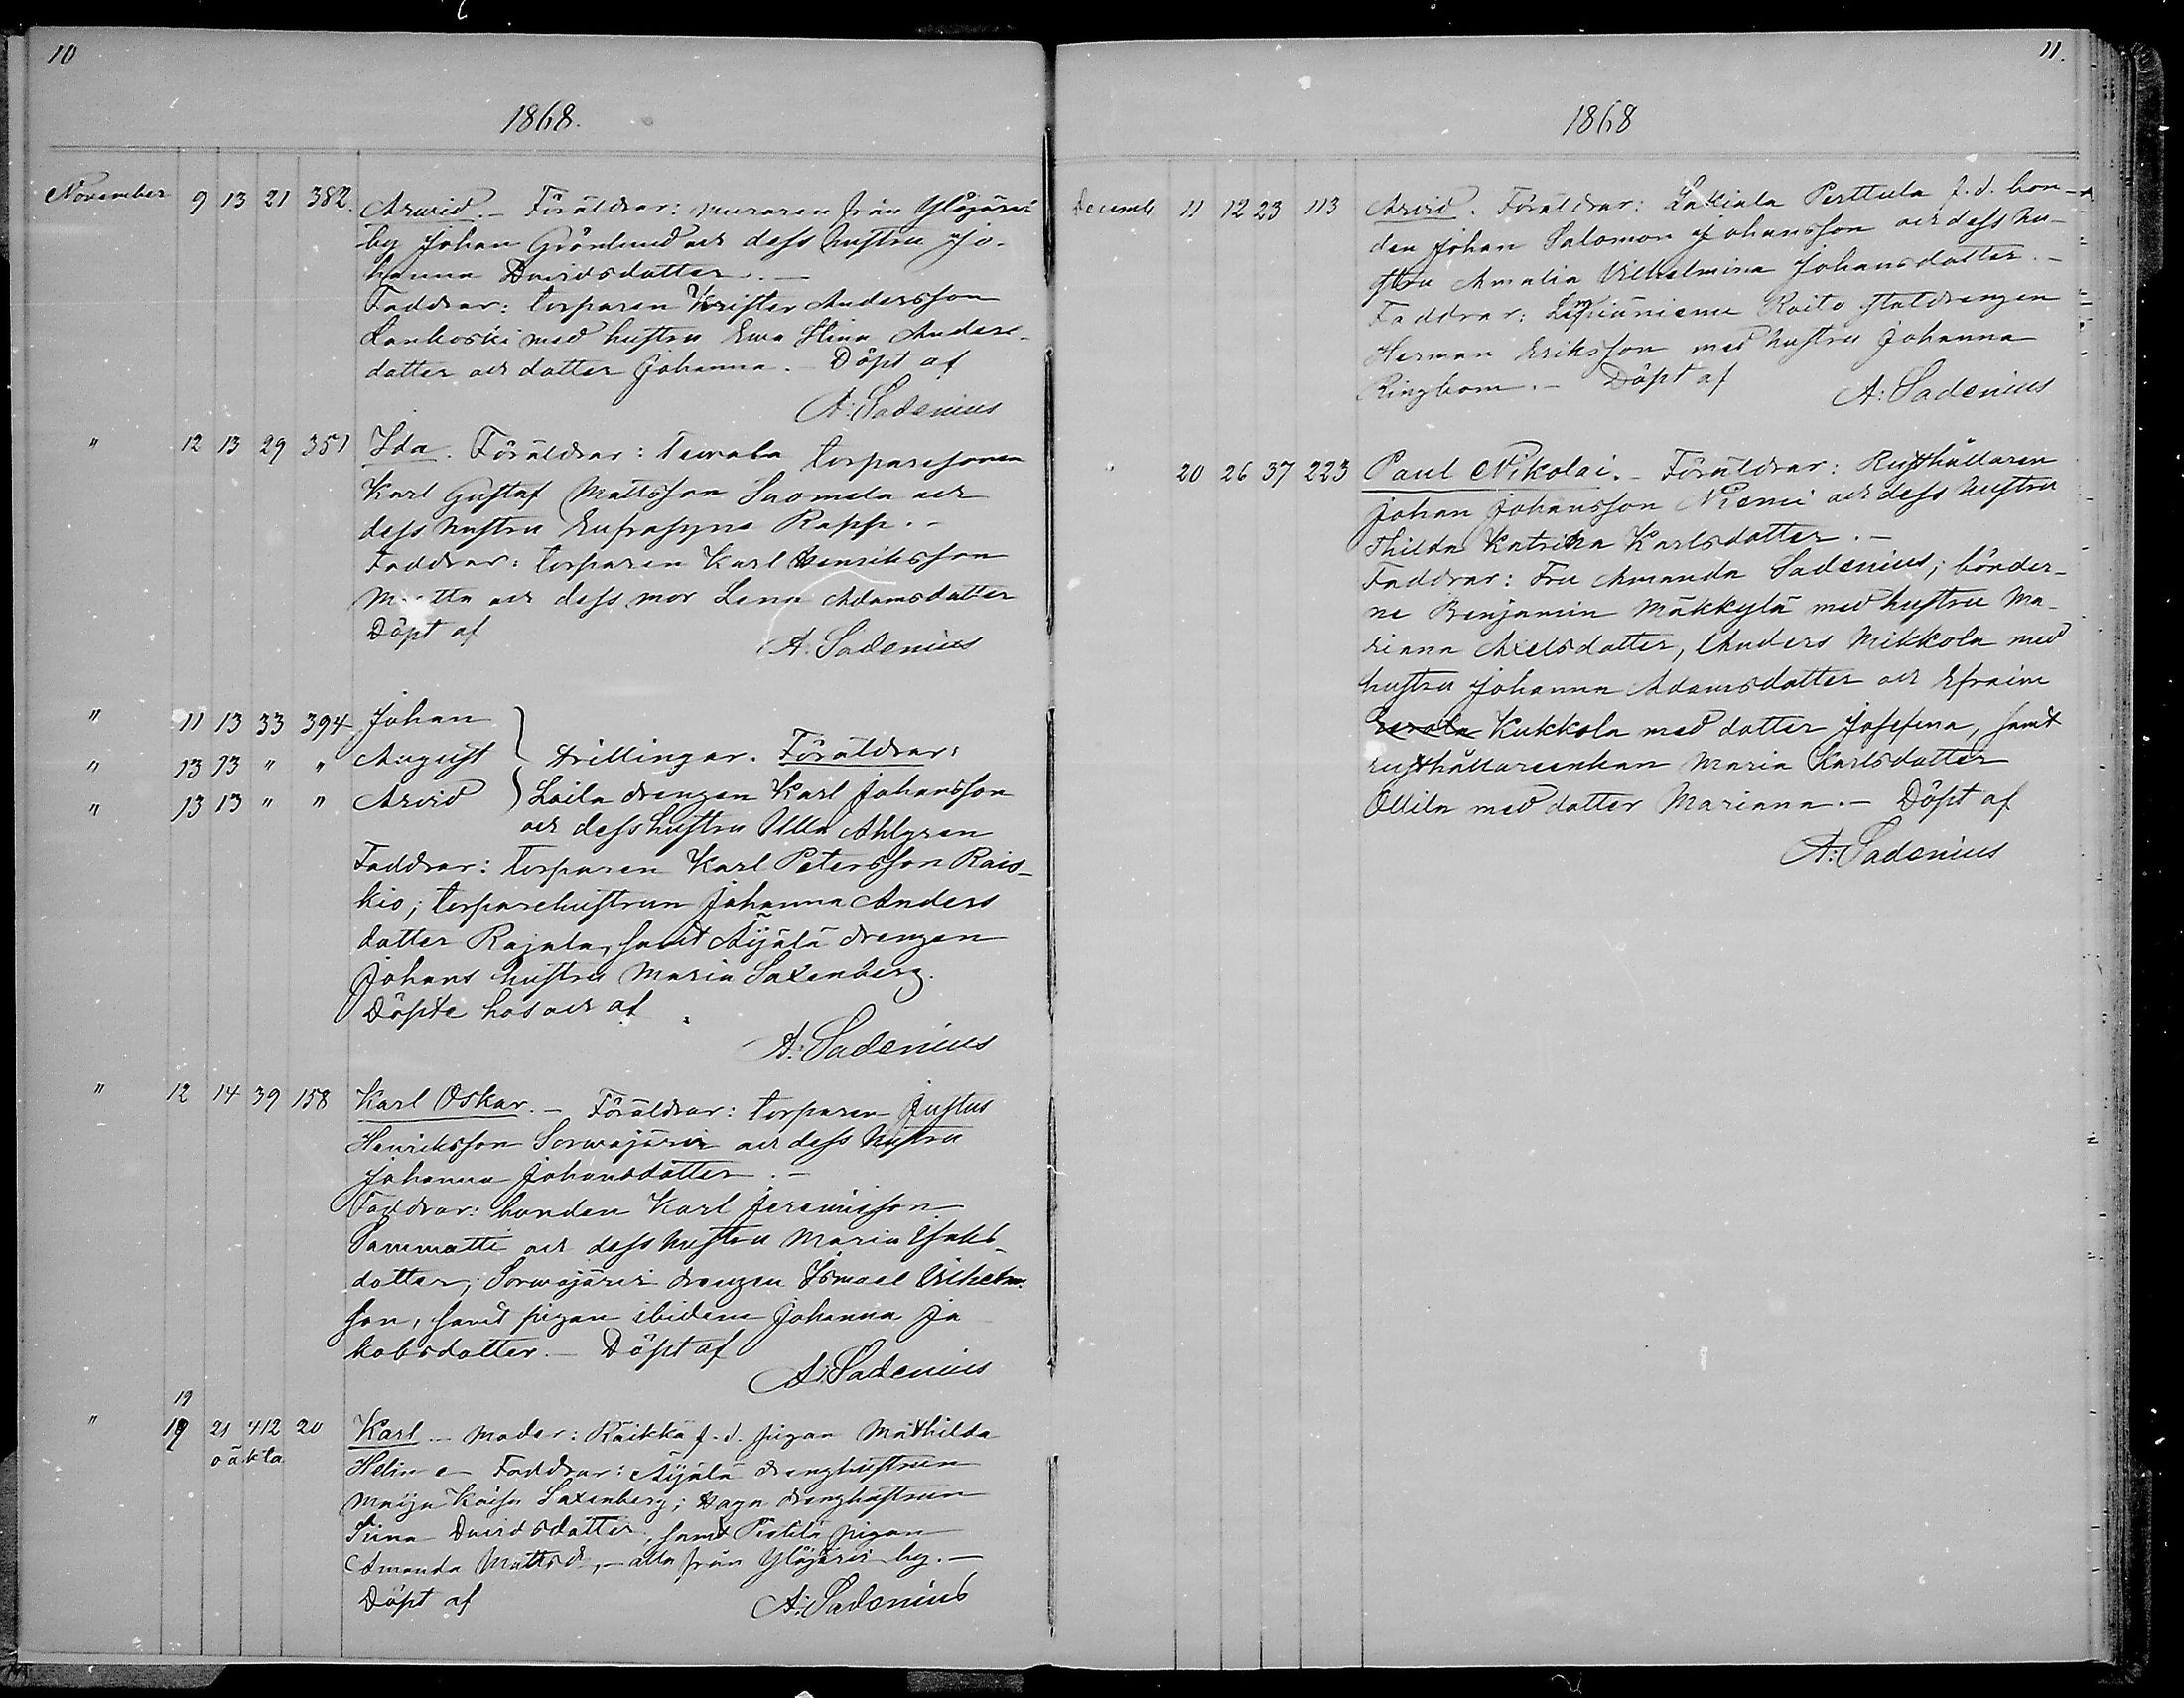 10
1868.
November 9 13 21 382. Arwid. – Föräldrar: muraren från Ylöjärvi
by Johan Grönlund och dess hustru Jo-
hanna Davidsdotter. –
Faddrar: torparen Krister Andersson
Lankoski med hustru Ewa Stina Anders-
dotter och dotter Johanna. – Döpt af
A: Sadenius
" 12 13 29 351 Ida. Föräldrar: Teivala torparesonen
Karl Gustaf Mattsson Suomela och
dess hustru Eufrasyne Rapp. –
Faddrar: torparen Karl Henriksson
och dess mor Lena Adamsdotter
Döpt af
A. Sadenius
" 11 13 33 394 Johan
" 13 13 " " August trillingar. Föräldrar:
" 13 13 " " Arvid Laila drengen Karl Johansson
och dess hustru Ulla Ahlgren
Faddrar: torparen Karl Petersson Rais-
kio; torparehustrun Johanna Anders
dotter Rajala, samt Äijälä drengen
Johans hustru Maria Saxenberg.
Döpte hos och af
A: Sadenius
" 12 14 39 158 Karl Oskar. – Föräldrar: torparen Justus
Henriksson Sorwajärvi och dess hustru
Johanna Johansdotter. –
Faddrar: bonden Karl Jeremiisson
Sammatti och dess hustru Maria Isaks-
dotter; Sorwajärvi drengen Ismael Vilhelm-
son, samt pigan ibidem Johanna Ja
kobsdotter. – Döpt af
A: Sadenius
19
" 19 21 412 20 Karl – Moder: Räikkä f. d. pigan Mathilda
oäkta
Helin e – Faddrar: Äijälä drenghustrun
Maija Kaisa Saxenberg; drenghustrun
Stina Davidsdotter, samt pigan
Amanda Mattsd., – alla från Ylöjärvi by. –
Döpt af
A: Sadenius
11.
1868
Decemb 11 12 23 113 Arvid. Föräldrar: Lakiala Perttula f. d. bon-
den Johan Salomon Johansson och dess hu-
stru Amalia Vilhelmina Johansdotter. –
Faddrar: Lempiäniemi Raito statdrengen
Herman Eriksson med hustru Johanna
Ringbom. – Döpt af
A: Sadenius
" 20 26 37 223 Paul Nikolai. – Föräldrar: Rusthållaren
Johan Johansson Niemi och dess hustru
Thilda Katrina Karlsdotter. –
Faddrar: Fru Amanda Sadenius; bönder-
ne Benjamin Mäkkylä med hustru Ma-
rianna Axelsdotter, Anders Mikkola med
hustru Johanna Adamsdotter och Efraim
Kukkola med dotter Josefina, samt
rusthållareenkan Maria Karlsdotter
Ollila med dotter Marianna. – Döpt af
A: Sadenius